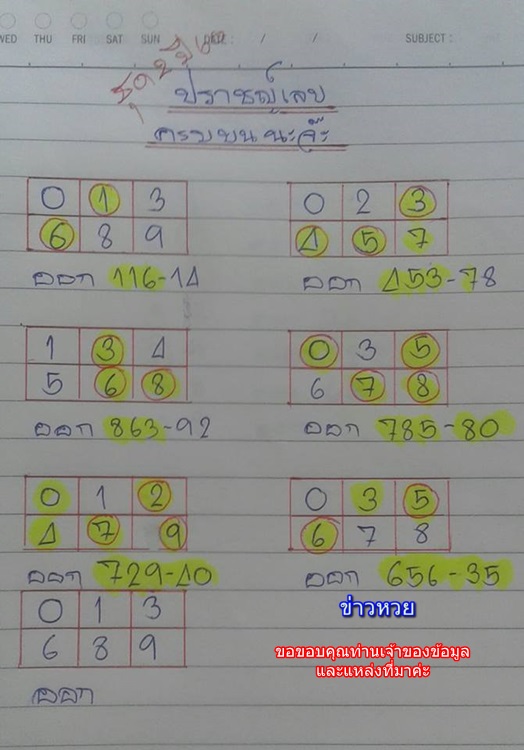 WED THU FRI SAT SUN / / SUBJECT :
ปราชญ์เลข
ครบบน นะจ๊ะ
0 1 3
6 8 9
ออก 116-14
0 2 3
4 5 7
ออก 453-78
1 3 4
5 6 8
ออก 863-92
0 3 5
6 7 8
ออก 785-80
0 1 2
4 7 9
ออก 729-40
0 3 5
6 7 8
ออก 656-35
0 1 3
6 8 9
ออก
ข่าวหวย
ขอขอบคุณท่านเจ้าของข้อมูล
และแหล่งที่มาค่ะ